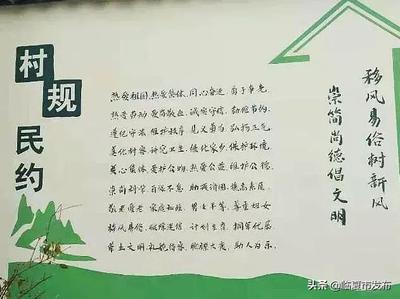 村规
民约
热爱祖国,热爱集体,同心奋进,勇于争先
热爱劳动 爱岗敬业 诚实守信 勤俭节约
遵纪守法 维护秩序 见义勇为 弘扬正气
美化村容 讲究卫生 绿化家乡 保护环境
关心集体 爱护公物 热爱公益 维护公德
崇尚科学 自强不息 提高素质
敬老爱老 家庭和睦 男女平等 尊重妇女
移风易俗 破除迷信 计划生育 拥军优属
举止文明 礼貌待客 大度 助人为乐
移风易俗树新风
崇简尚德倡文明
头条@临夏市发布